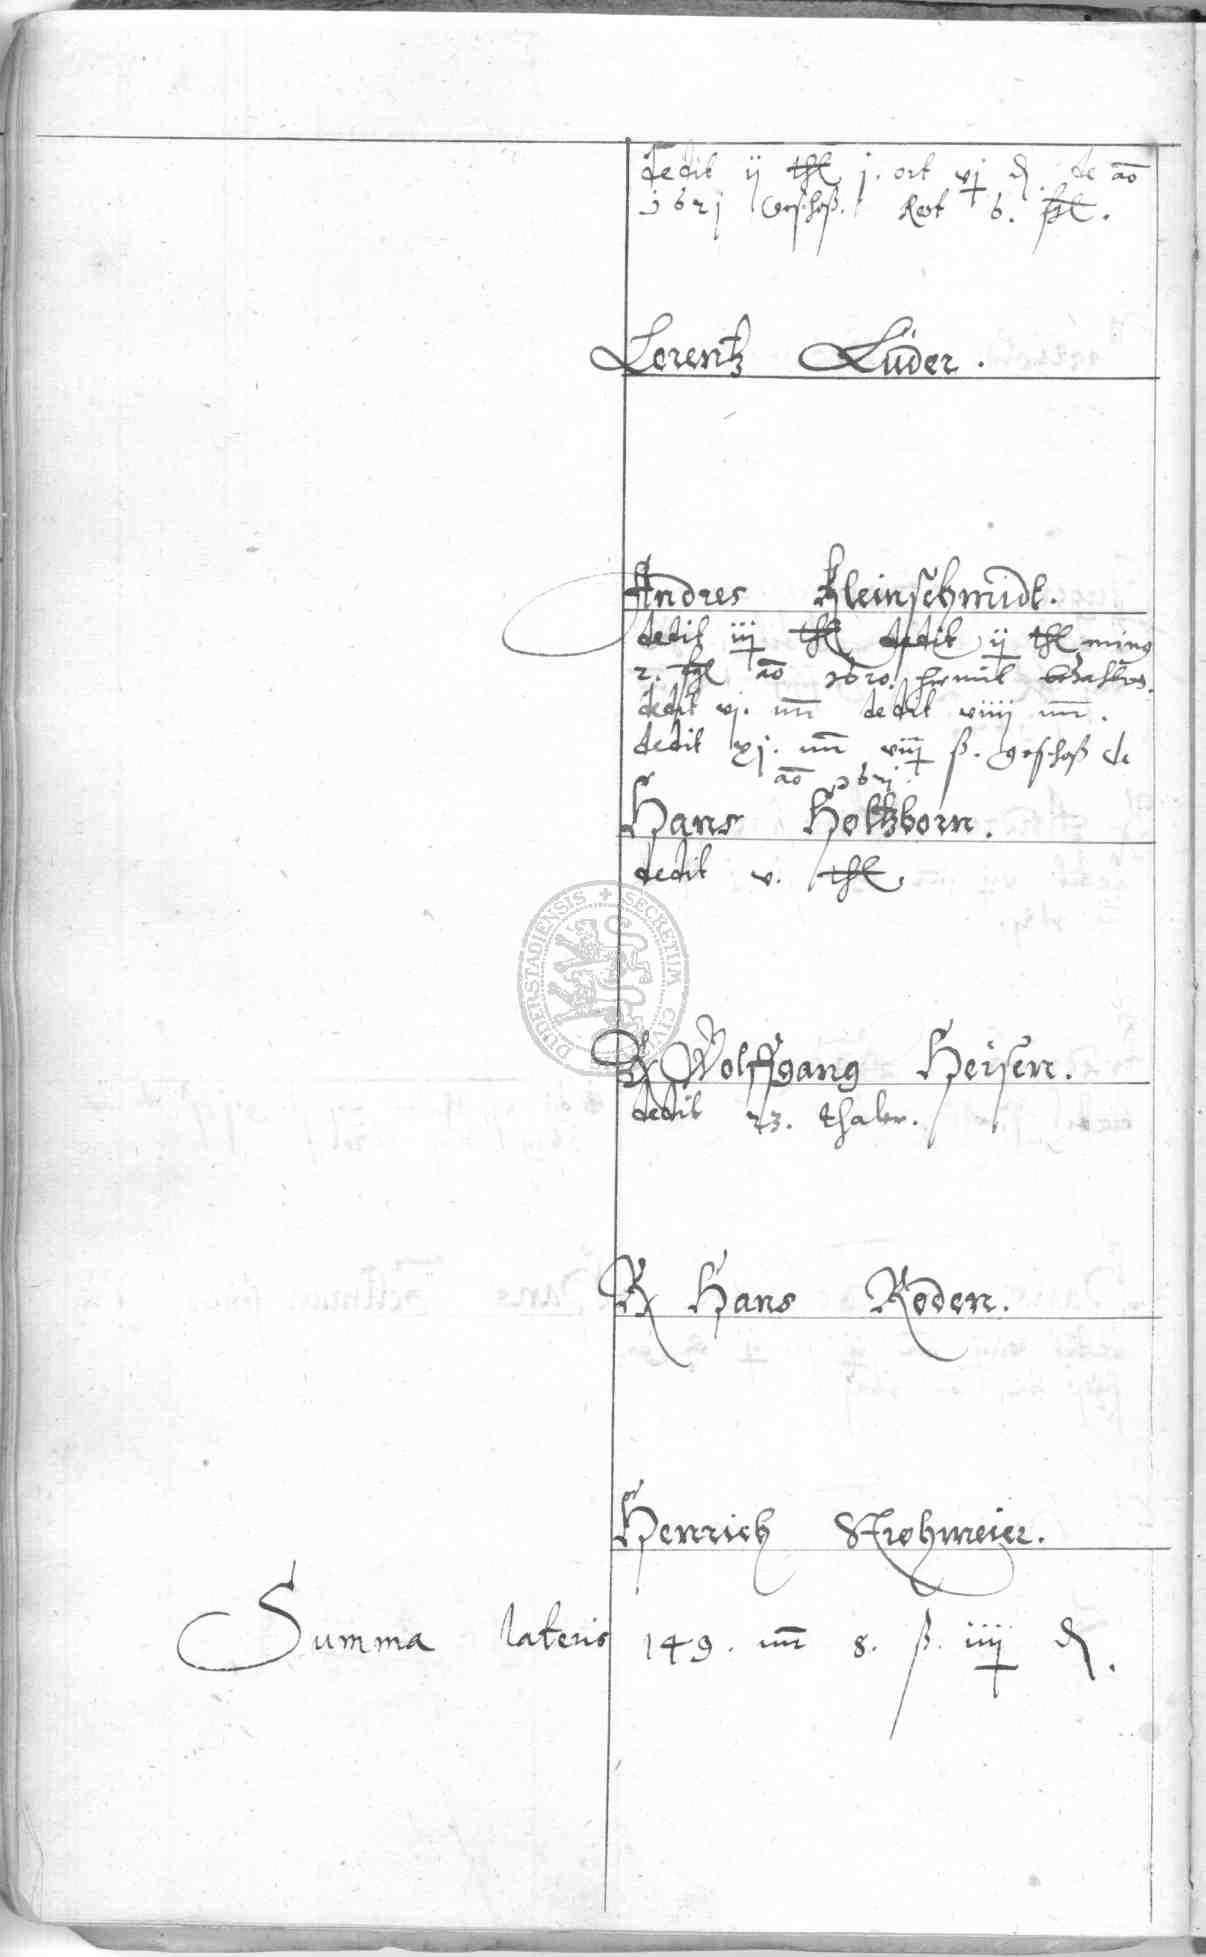 dedit ij thl j. ort vj d. de ao
1621 Geschoß. Rest 6. ßl.
Lorentz Lüder.
Andres Kleinschmidt.
dedit iij thl dedit ij thl minq
2. ßl ao 1620. hiemit bezahlt
dedit vj. m dedit viiij m.
dedit xj. m viij ß. geschoß de
ao 1621
Hans Holtzborn.
dedit v. thl.
R Wolffgang Heisen.
dedit 23. thaler.
R Hans Roden.
Henrich Strohmeier.
Summa lateris 149. m 8. ß. iiij d.
DUDERSTADIENSIS + SECRETUM CIVI